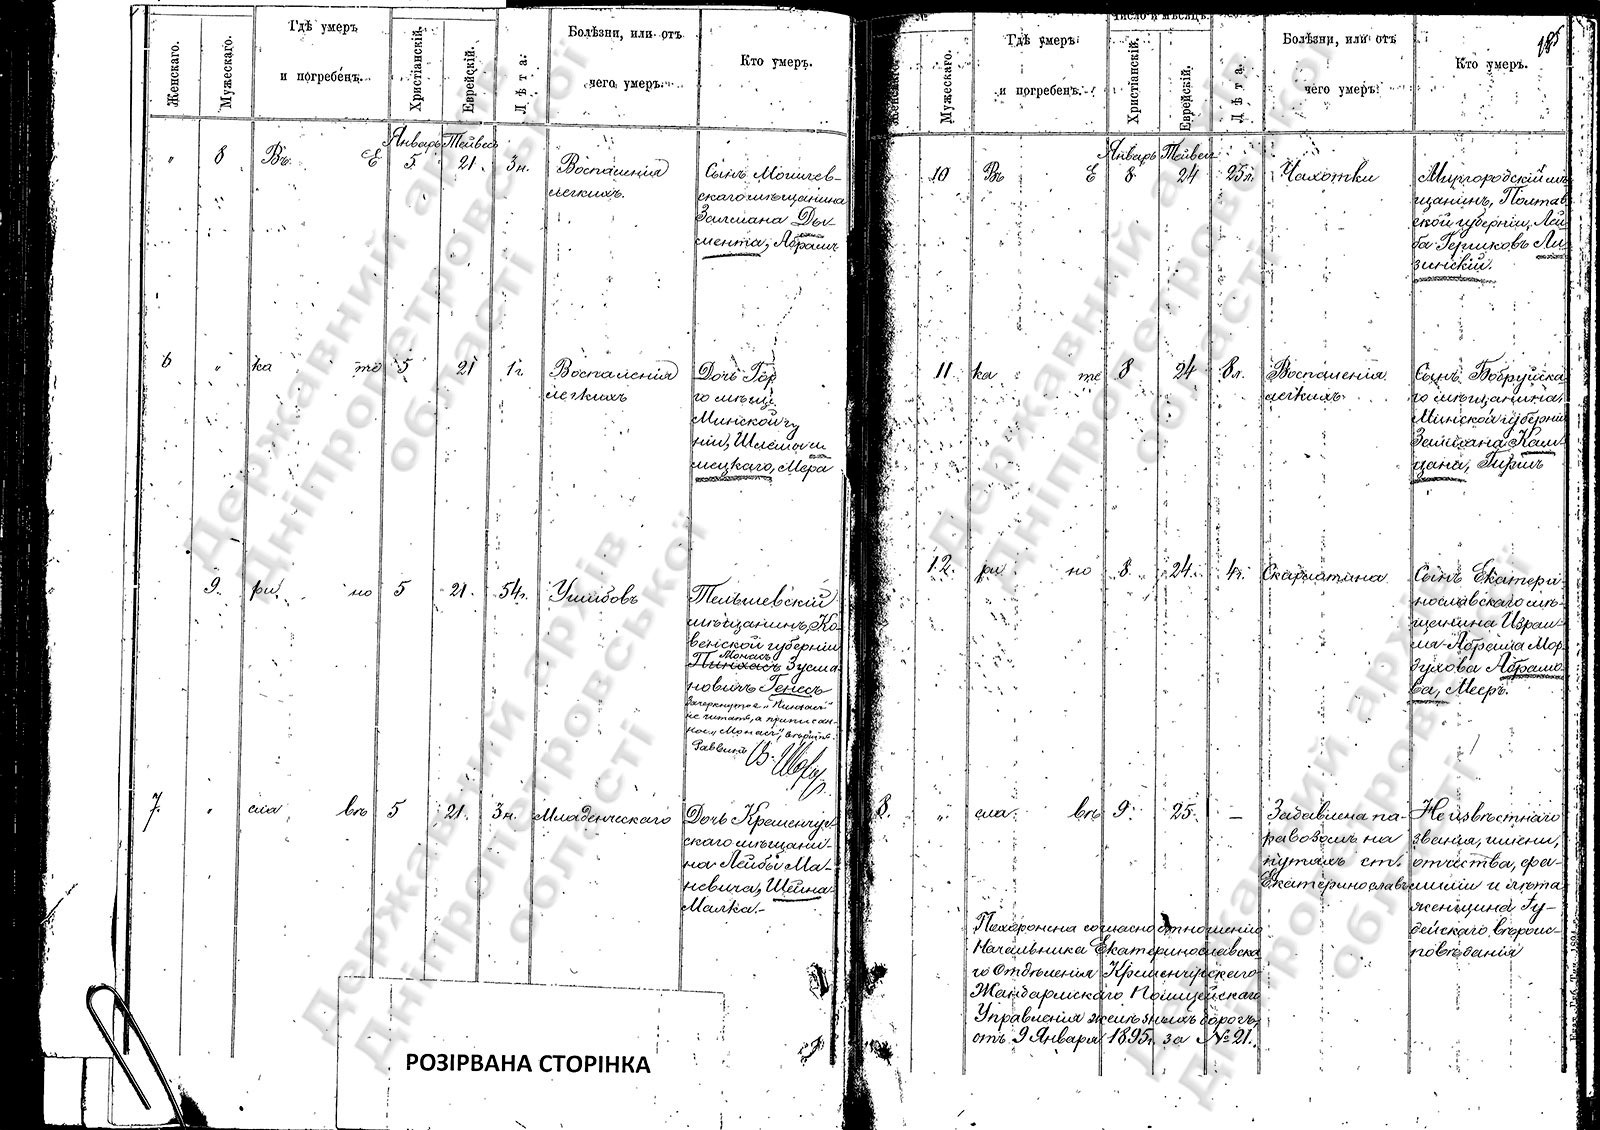 Женскаго.
Мужескаго.
Гдѣ умеръ
и погребенъ.
Христіанскій.
Еврейскій.
Лѣта:
Болѣзни, или отъ
чего умеръ.
Кто умеръ.
Январь Тейвесъ
" 8 Въ Е 5 21 3 н. Воспаленія
легкихъ.
Сынъ Могилев-
скаго мѣщанина
Залмана Ды-
мента, Абрамъ
6 " ка те 5 21 1 г. Воспаленія
легкихъ
Дочь Гор
го мѣще
Минской гу
ніи, Шлемы
мецкаго, Мера
9. ри но 5 21. 54 г. Ушибовъ
Тельшевскій
мѣщанинъ, Ко-
венской губерніи
Монасъ
Пинхасъ Зусма
новичъ Генесъ
Зачеркнутое "Пинхасъ"
не читать, а приписан-
ное "Монасъ", вѣрить.
Раввинъ
7. " сла вѣ 5 21. 3 н. Младенческаго
Дочь Кременчуг-
скаго мѣщани-
на Лейбы Ма-
невича, Шейна-
Малка.-
РОЗІРВАНА СТОРІНКА
185
Женскаго.
Мужескаго.
Гдѣ умеръ
и погребенъ.
Число и мѣсяцъ.
Христіанскій.
Еврейскій.
Лѣта.
Болѣзни, или отъ
чего умеръ.
Кто умеръ.
Январь Тейвесъ
10 Въ Е 8 24 25 л. Чахотки
Миргородскій мѣ
щанинъ, Полтав
ской губерніи, Лей
ба Гершковъ Ли
зинскій.
11 ка те 8 24 8 л. Воспаленія
легкихъ
Сынъ Бобруйска
го мѣщанина,
Минской губерніи
Залмана Кац-
мана, Гиршъ
12. ри но 8 24. 4 г. Скарлатина
Сынъ Екатери
нославскаго мѣ-
щанина Израи-
ля-Абрама Мор
зулова Абрамо
ва, Меер.
8. " сла вѣ 9. 25. — Задавлена па-
равозомъ на
путяхъ ст.
Екатеринославъ
Неизвѣстнаго
званія, имени,
отчества, фа-
миліи и лѣта
женщина Іу-
дейскаго вѣроис-
повѣданія
Похоронена согласно отношенію
Начальника Екатеринославска
го Отдѣленія Кременчугскаго
Жандармскаго Полицейскаго
Управленія желѣзныхъ дорогъ,
отъ 9 Января 1895 г. за № 21.
Державний архів
Дніпропетровської
області